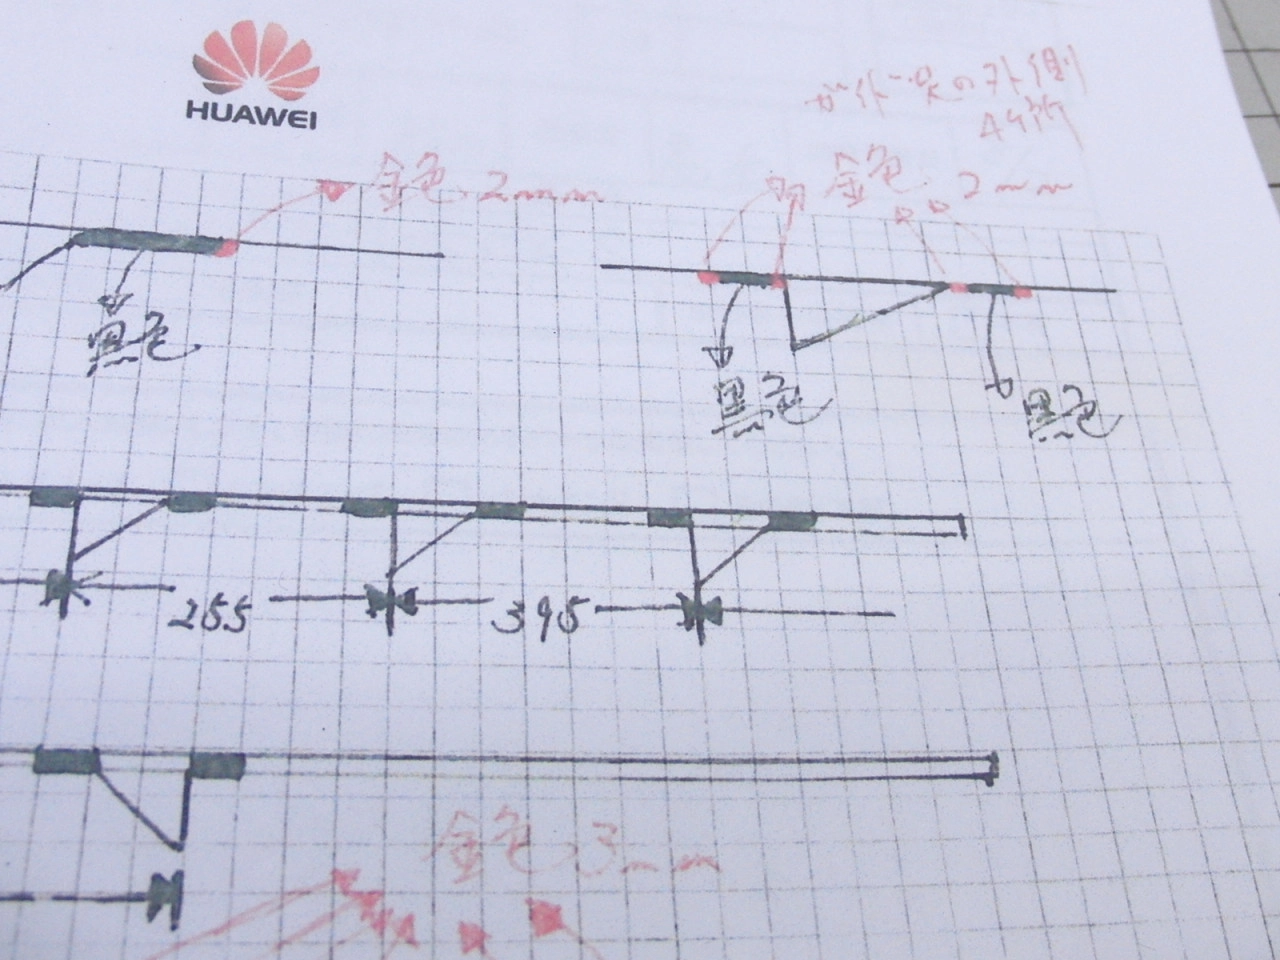 HUAWEI
の外側
4ヶ所
金色 2mm
金色 2mm
黒色
黒色
黒色
255
395
金色 3mm